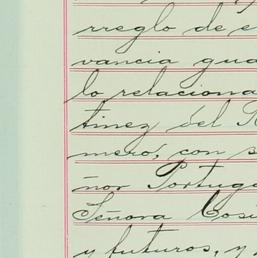 rreglo de e
vancia gua
lo relaciona
tinez del R
mero, con s
ñor Portuga
Señora Cosi
y futuros, y